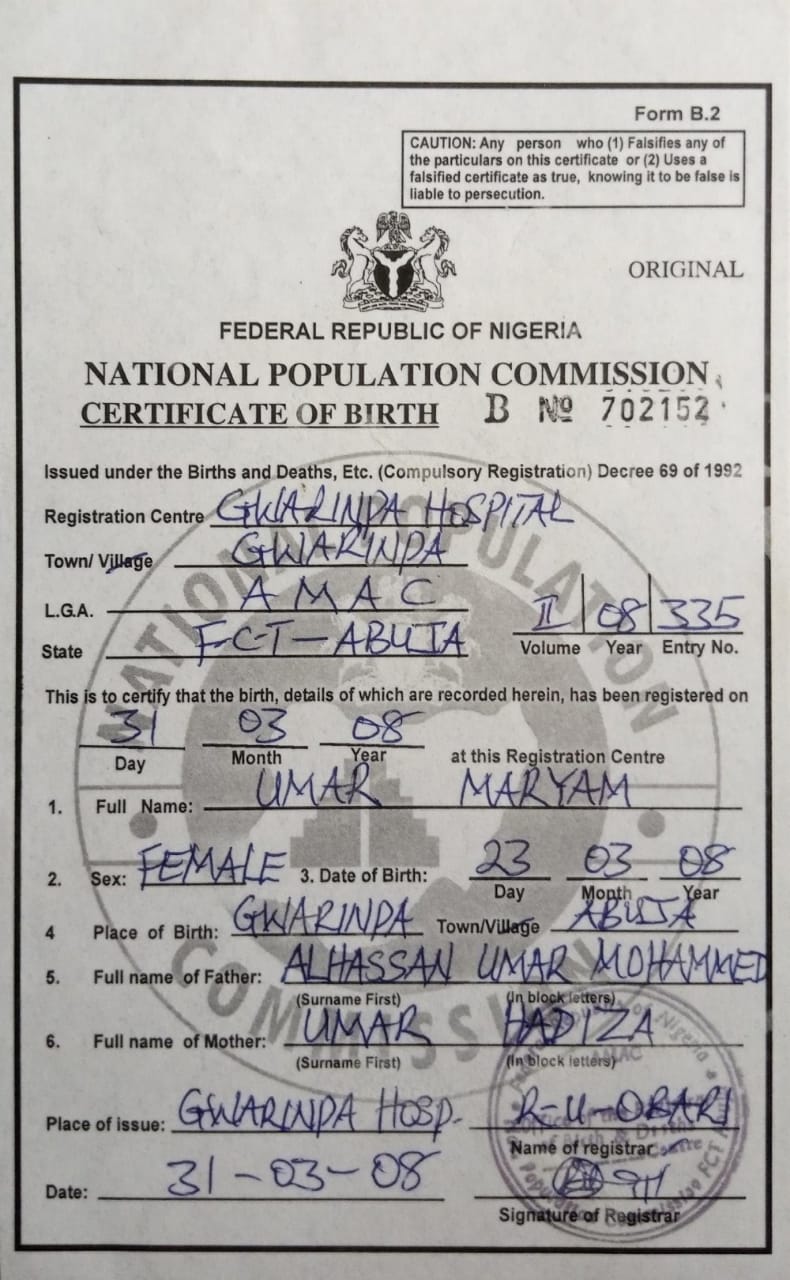 Form B.2
CAUTION: Any person who (1) Falsifies any of
the particulars on this certificate or (2) Uses a
falsified certificate as true, knowing it to be false is
liable to persecution.
ORIGINAL
FEDERAL REPUBLIC OF NIGERIA
NATIONAL POPULATION COMMISSION
CERTIFICATE OF BIRTH B No 702152
Issued under the Births and Deaths, Etc. (Compulsory Registration) Decree 69 of 1992
Registration Centre GWARINPA HOSPITAL
Town/ Village GWARINPA
L.G.A. AMAC
State FCT-ABUJA
II 08 335
Volume Year Entry No.
This is to certify that the birth, details of which are recorded herein, has been registered on
31 03 08
Day Month Year at this Registration Centre
1. Full Name: UMAR MARYAM
2. Sex: FEMALE 3. Date of Birth: 23 03 08
Day Month Year
4 Place of Birth: GWARINPA Town/Village ABUJA
5. Full name of Father: ALHASSAN UMAR MOHAMMED
(Surname First) (In block letters)
6. Full name of Mother: UMAR HADIZA
(Surname First) (In block letters)
Place of issue: GWARINPA HOSP. R-U-OBARI
Name of registrar
Date: 31-03-08
Signature of Registrar
NATIONAL POPULATION COMMISSION